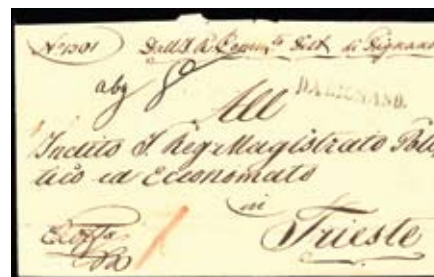 N. 1301 Dall' I. R. Comm.to Dist. di Dignano
abg
DADIGNANO.
All
Inclito I. Reg. Magistrato Poli-
tico ed Economato
in
Trieste
Ex offo